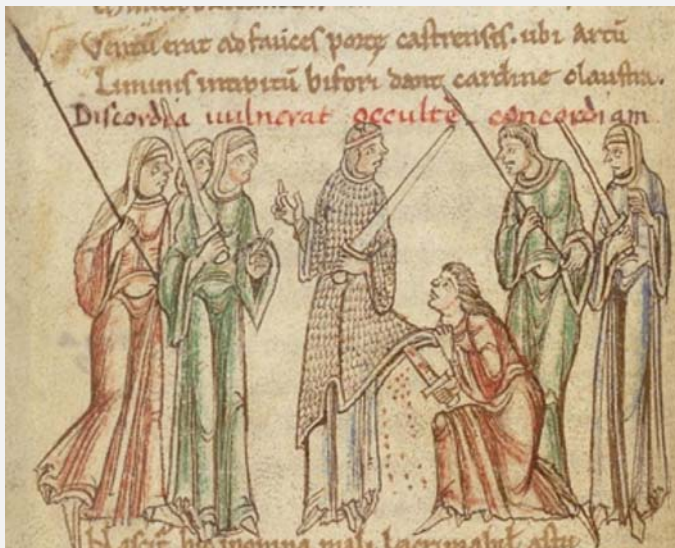 Ventū erat ad fauces portę castrensis. ubi artū
Liminis introitū bifori dant cardine claustra.
Discordia uulnerat occulte concordiam
inopina mali lacrimabil' astu